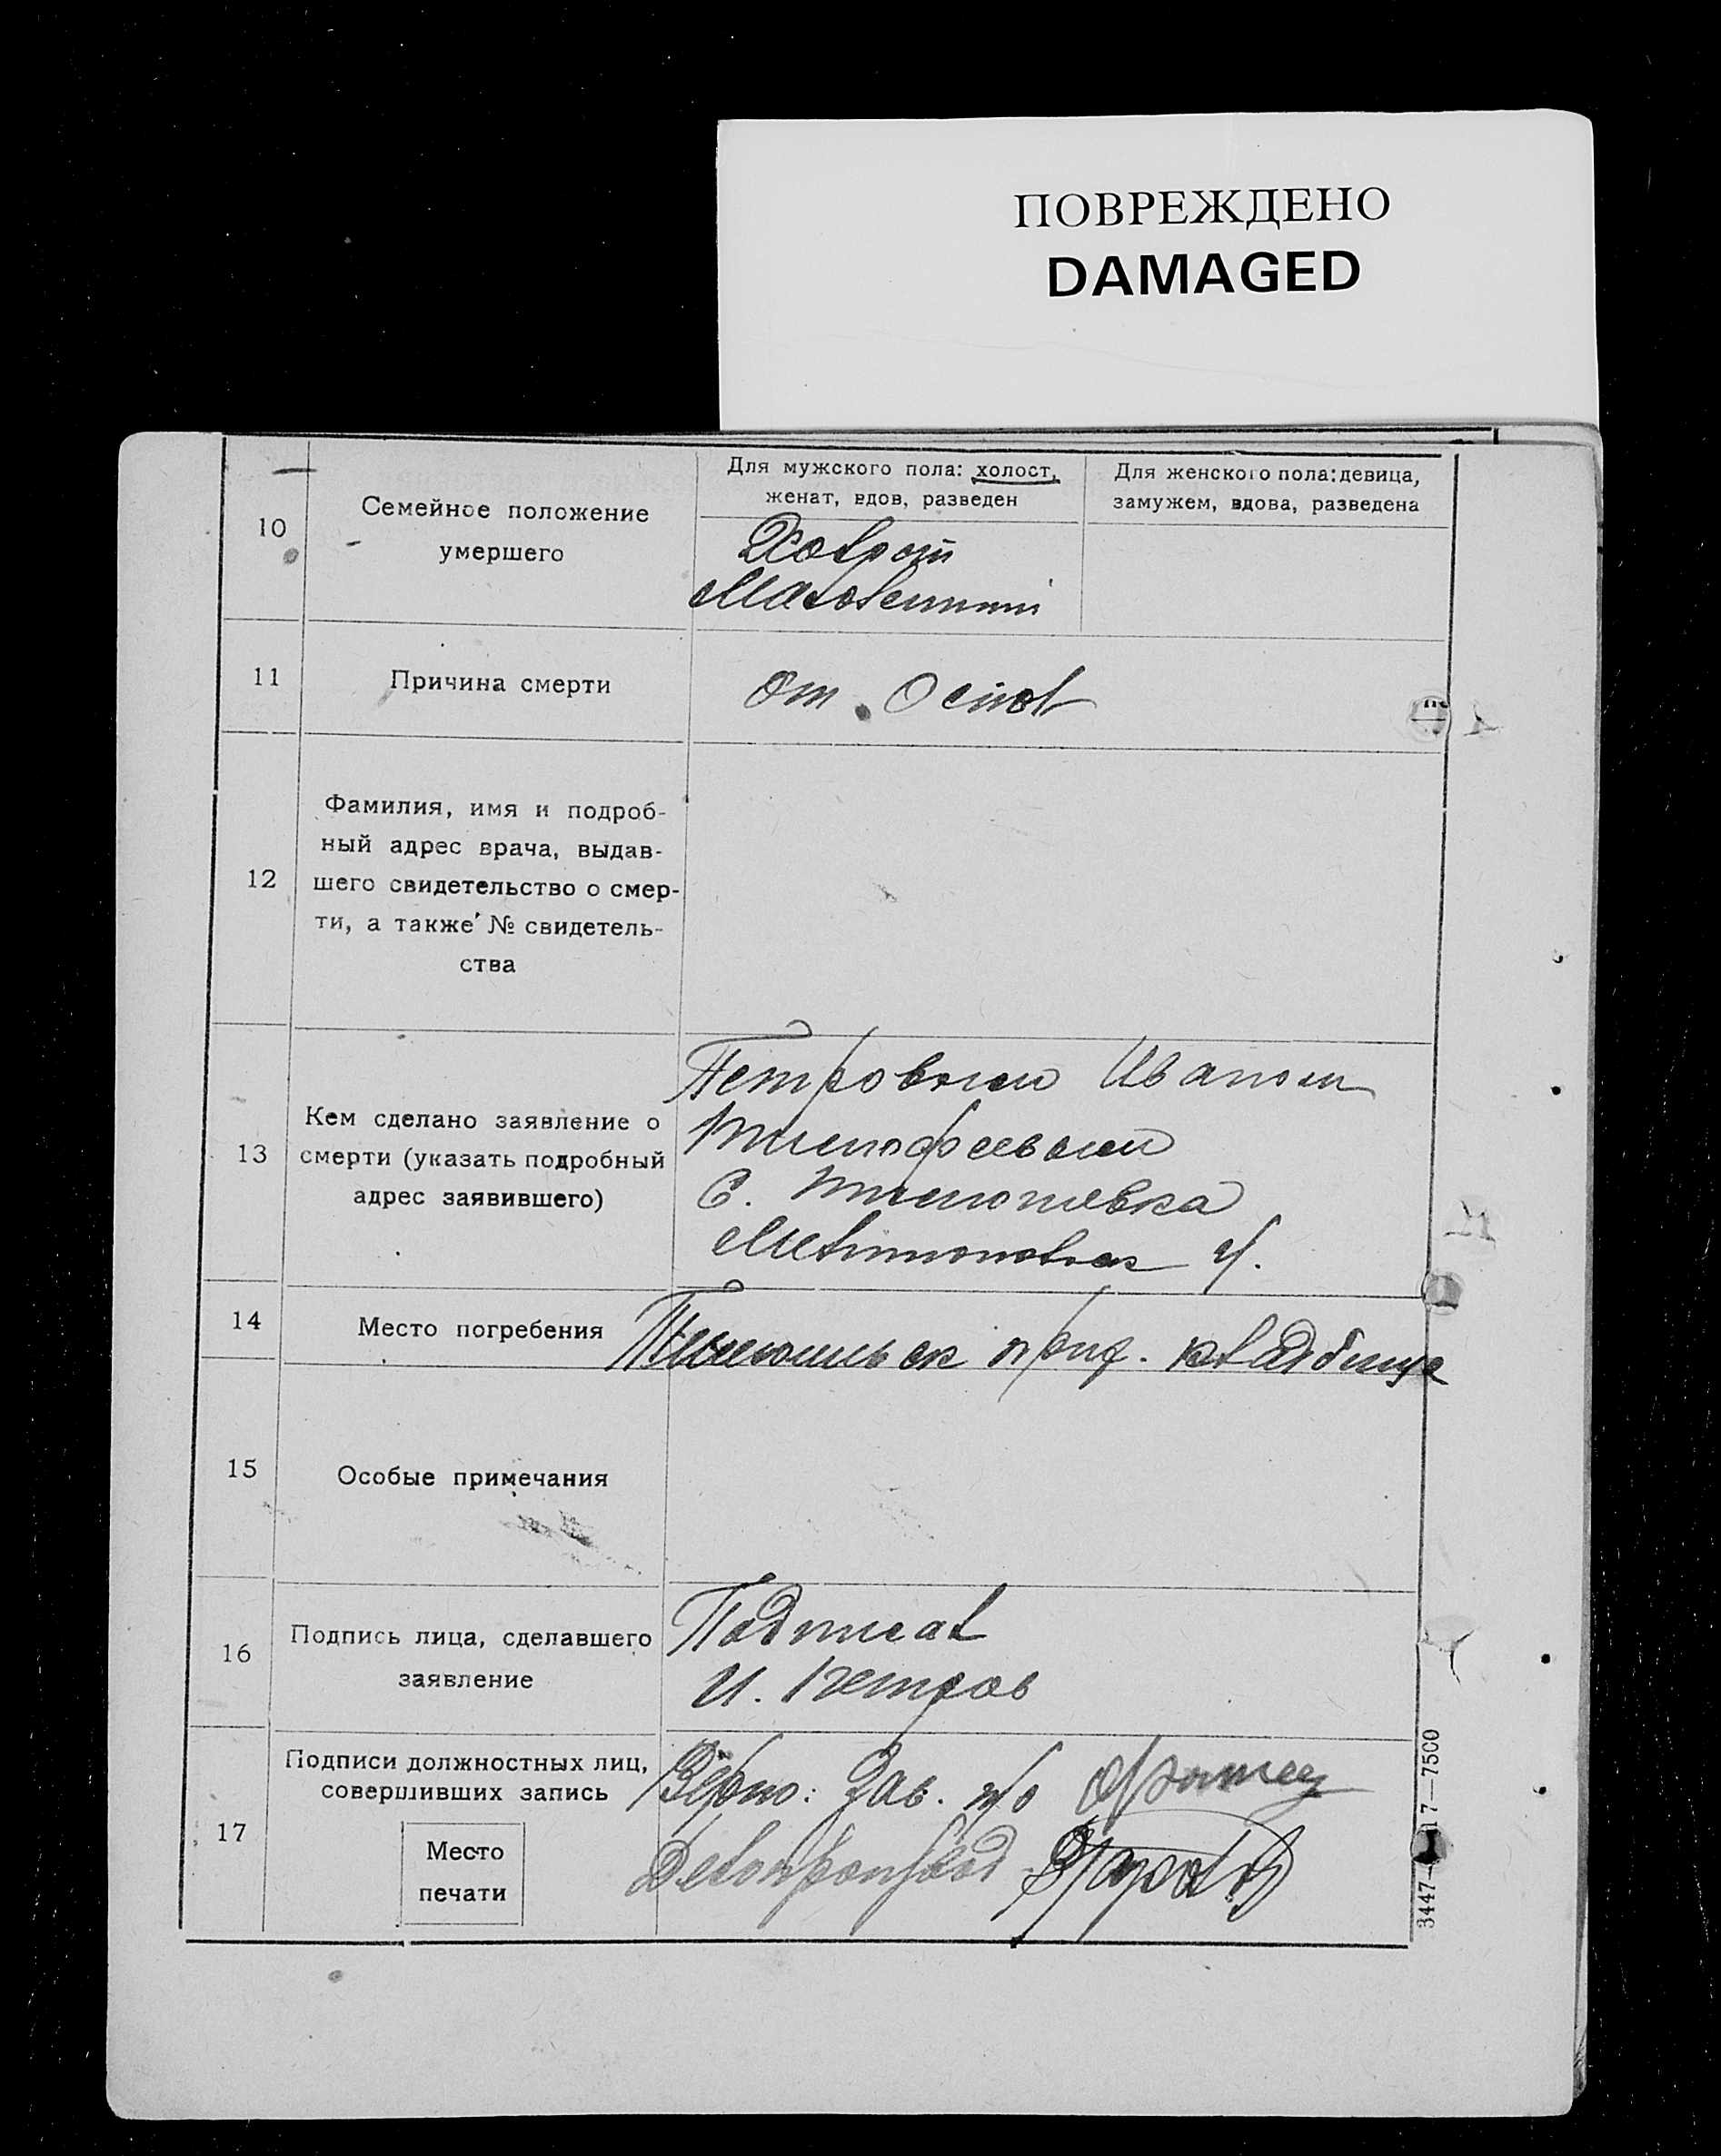 ПОВРЕЖДЕНО
DAMAGED
10
Семейное положение
умершего
Для мужского пола: холост,
женат, вдов, разведен
Для женского пола: девица,
замужем, вдова, разведена
Холост
11
Причина смерти
от
12
Фамилия, имя и подроб-
ный адрес врача, выдав-
шего свидетельство о смер-
ти, а также № свидетель-
ства
13
Кем сделано заявление о
смерти (указать подробный
адрес заявившего)
Петровым Иваном
Тимофеевым
С. Тимошевка
14
Место погребения
кладбище
15
Особые примечания
16
Подпись лица, сделавшего
заявление
Подписал
И. Петров
17
Подписи должностных лиц,
совершивших запись
Место
печати
Верно: Зав. п/о
Делопроизвод